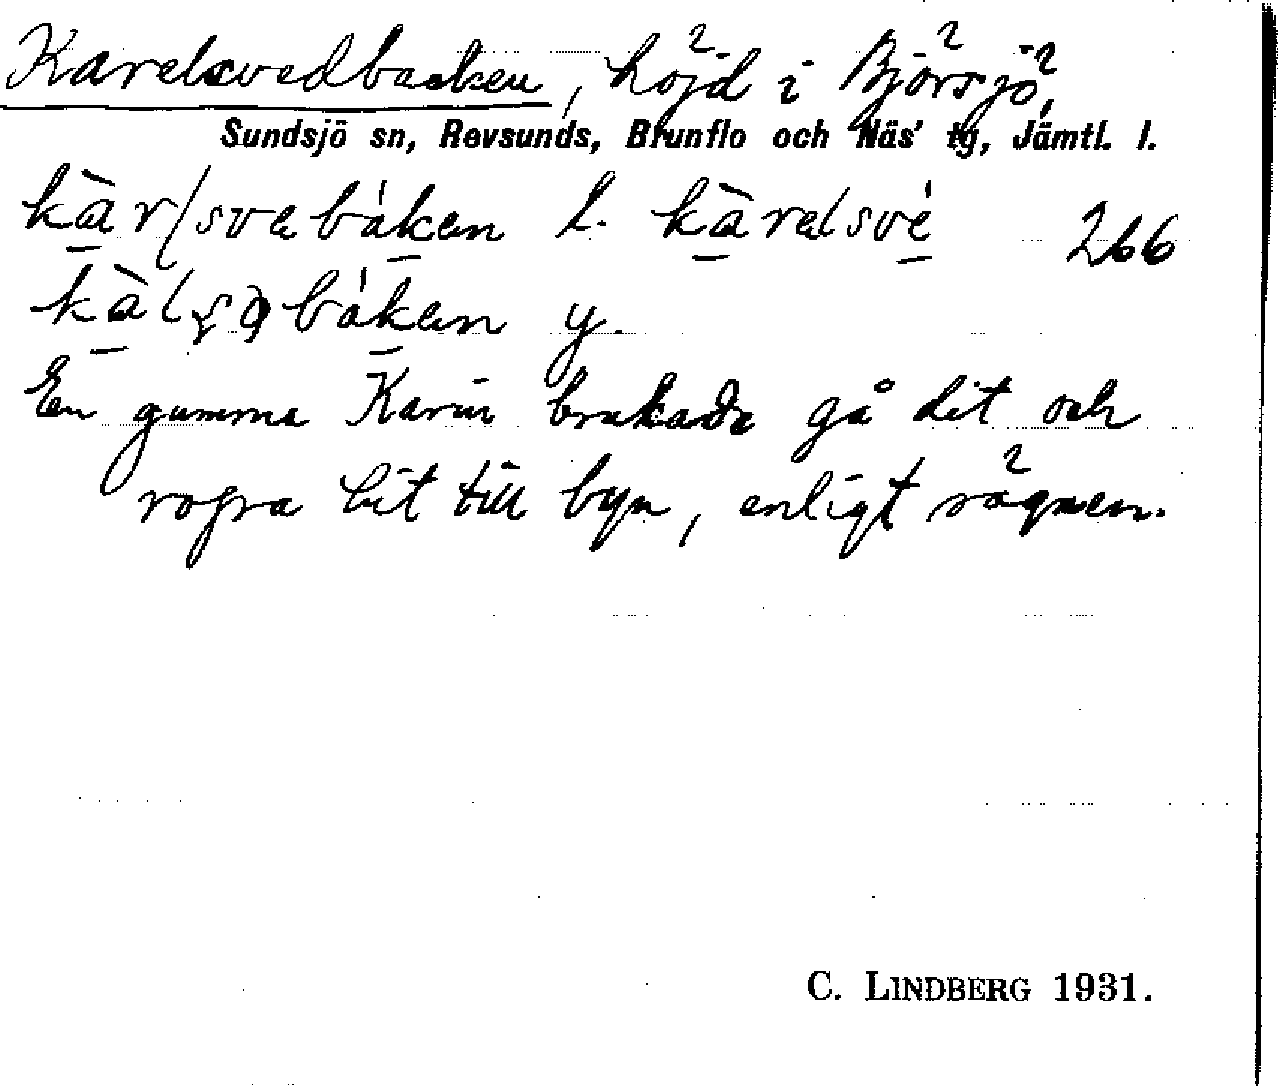 Karelsvedbacken, höjd i Björsjö,
Sundsjö sn, Revsunds, Brunflo och Näs' tg, Jämtl. l.
kàrlsvebákən l. kàrəlsvé 266
bákən y.
En gumma Karin brukade gå dit och
ropa hit till byn, enligt sägnen.
C. LINDBERG 1931.